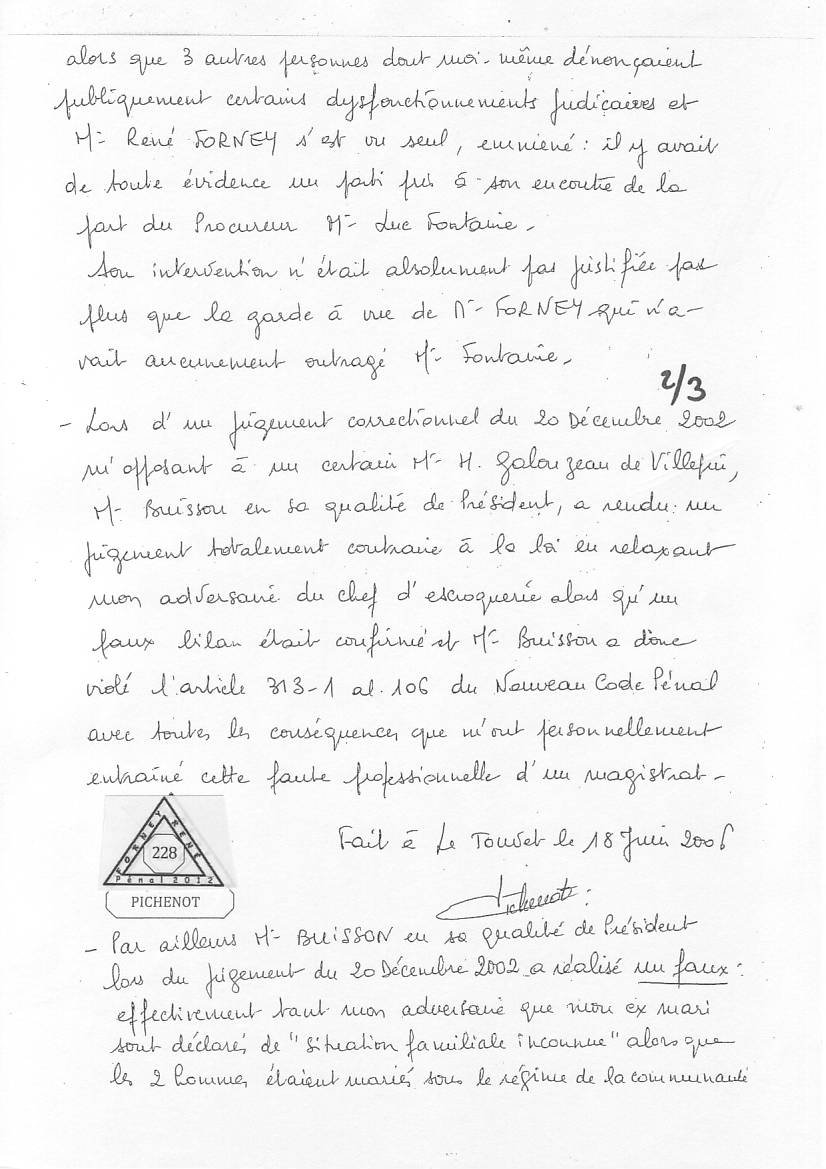 alors que 3 autres personnes dont moi-même dénonçaient
publiquement certains dysfonctionnements judicaires et
Mr René FORNEY s'est vu seul, emmené : il y avait
de toute évidence un parti pris à son encontre de la
part du Procureur Mr Luc Fontaine.
Son intervention n'était absolument pas justifiée pas
plus que la garde à vue de Mr FORNEY qui n'a-
vait aucunement outragé Mr Fontaine.
2/3
- Lors d'un jugement correctionnel du 20 Décembre 2002
m'opposant à un certain Mr H. Galouzeau de Villepin,
Mr Buisson en sa qualité de Président, a rendu un
jugement totalement contraire à la loi en relaxant
mon adversaire du chef d'escroquerie alors qu'un
faux bilan était confirmé et Mr Buisson a donc
violé l'article 313-1 al. 106 du Nouveau Code Pénal
avec toutes les conséquences que m'ont personnellement
entrainé cette faute professionnelle d'un magistrat -
Fait à Le Touvet le 18 Juin 2006
FORNEY RENÉ
228
Pénal 2012
PICHENOT
Pichenot
- Par ailleurs Mr BUISSON en sa qualité de Président
lors du jugement du 20 Décembre 2002 a réalisé un faux :
effectivement tant mon adversaire que mon ex mari
sont déclarés de "situation familiale inconnue" alors que
les 2 hommes étaient mariés sous le régime de la communauté